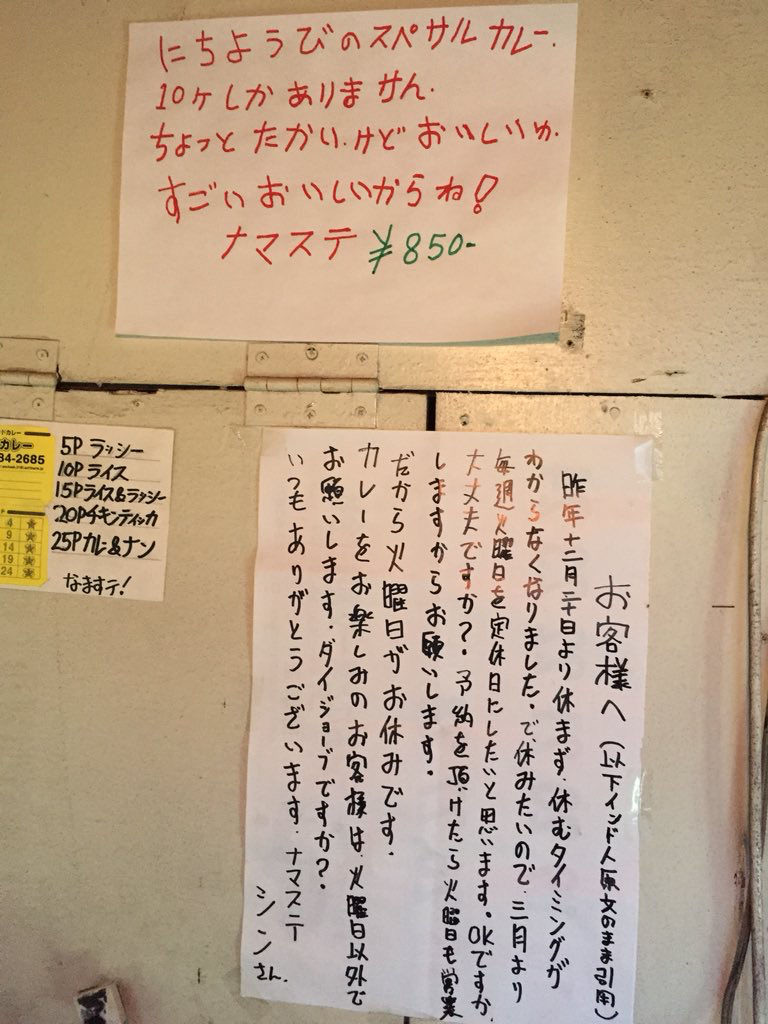 にちようびのスペサルカレー.
10ヶしかありません.
ちょっとたかい.けどおいしいゆ.
すごいおいしいからね!
ナマステ ¥850-
ドカレー
カレー
84-2685
4 ★
9 ★
14 ★
19 ★
24 ★
5P ラッシー
10P ライス
15Pライス&ラッシー
20Pチキンティッカ
25Pカレー&ナン
なますテ!
お客様へ(以下インド人原文のまま引用)
昨年十二月二十日より休まず.休むタイミングが
わからなくなりました。で、休みたいので、三月より
毎週火曜日を定休日にしたいと思います。OKですか.
大丈夫ですか?.予約を頂けたら火曜日も営業
しますからお願いします。
だから火曜日がお休みです.
カレーをお楽しみのお客様は、火曜日以外で
お願いします.ダイジョーブですか?
いつもありがとうございます.ナマステ
シンさん.